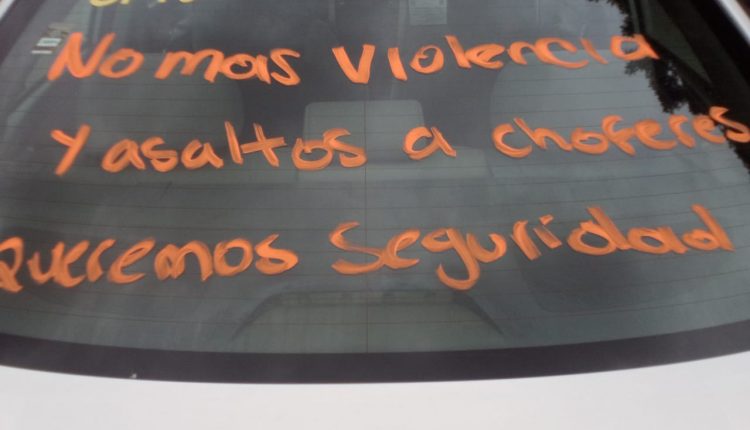 No mas Violencia
Y asaltos a choferes
Queremos Seguridad